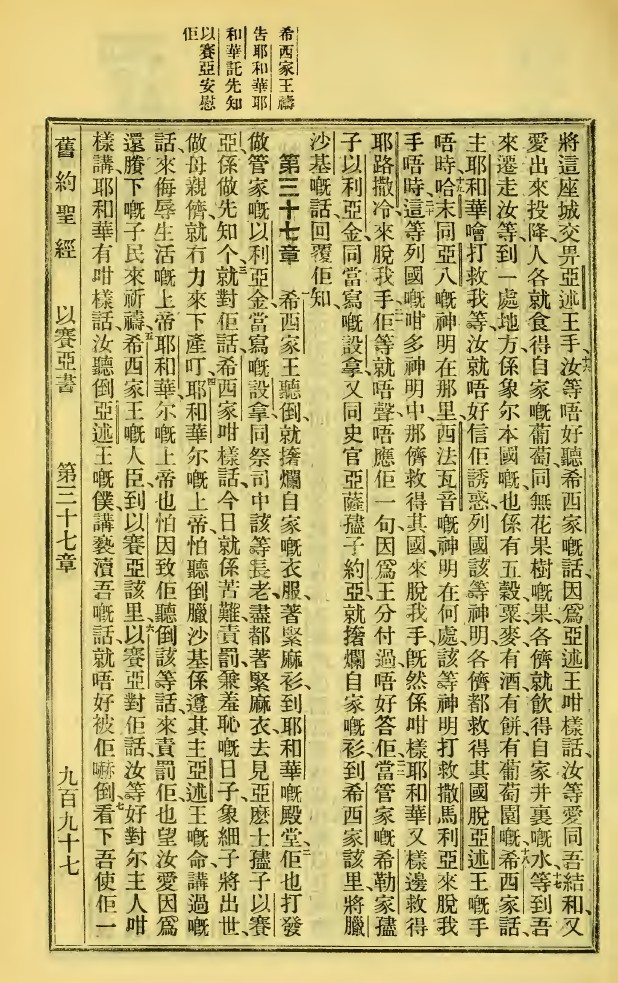 希西家王禱
告耶和華耶
和華託先知
以賽亞安慰
佢
將這座城交畀亞述王手、十六汝等唔好聽希西家嘅話因爲亞述王咁樣話汝等愛同吾結和又
愛出來投降人各就食得自家嘅葡萄同無花果樹嘅果各儕就飲得自家井裏嘅水、十七等到吾
來遷走汝等到一處地方係象尔本國嘅也係有五穀粟麥有酒有餅有葡萄園嘅、十八希西家話、
主耶和華噲打救我等汝就唔好信佢誘惑列國該等神明各儕都救得其國脫亞述王嘅手
唔時、十九哈末同亞八嘅神明在那里西法瓦音嘅神明在何處該等神明打救撒馬利亞來脫我
手唔時、二十這等列國嘅咁多神明中那儕救得其國來脫我手既然係咁樣耶和華又樣邊救得
耶路撒冷來脫我手、二一佢等就唔聲唔應佢一句因爲王分付過唔好答佢、二二當管家嘅希勒家孻
子以利亞金同當寫嘅設拿又同史官亞薩孻子約亞就撦爛自家嘅衫到希西家該里將臘
沙基嘅話回覆佢知
第三十七章 一希西家王聽倒就撦爛自家嘅衣服著緊麻衫到耶和華嘅殿堂、二佢也打發
做管家嘅以利亞金當寫嘅設拿同祭司中該等長老盡都著緊麻衣去見亞麽士孻子以賽
亞係做先知个、三就對佢話希西家咁樣話今日就係苦難責罰兼羞恥嘅日子象細子將出世、
做母親儕就冇力來下產、四叮耶和華尔嘅上帝怕聽倒臘沙基係遵其主亞述王嘅命講過嘅
話來侮辱生活嘅上帝耶和華尔嘅上帝也怕因致佢聽倒該等話來責罰佢也望汝愛因爲
還賸下嘅子民來祈禱、五希西家王嘅人臣到以賽亞該里、六以賽亞對佢話汝等好對尔主人咁
樣講耶和華有咁樣話汝聽倒亞述王嘅僕講褻瀆吾嘅話就唔好被佢嚇倒、七看下吾使佢一
舊約聖經 以賽亞書 第三十七章 九百九十七